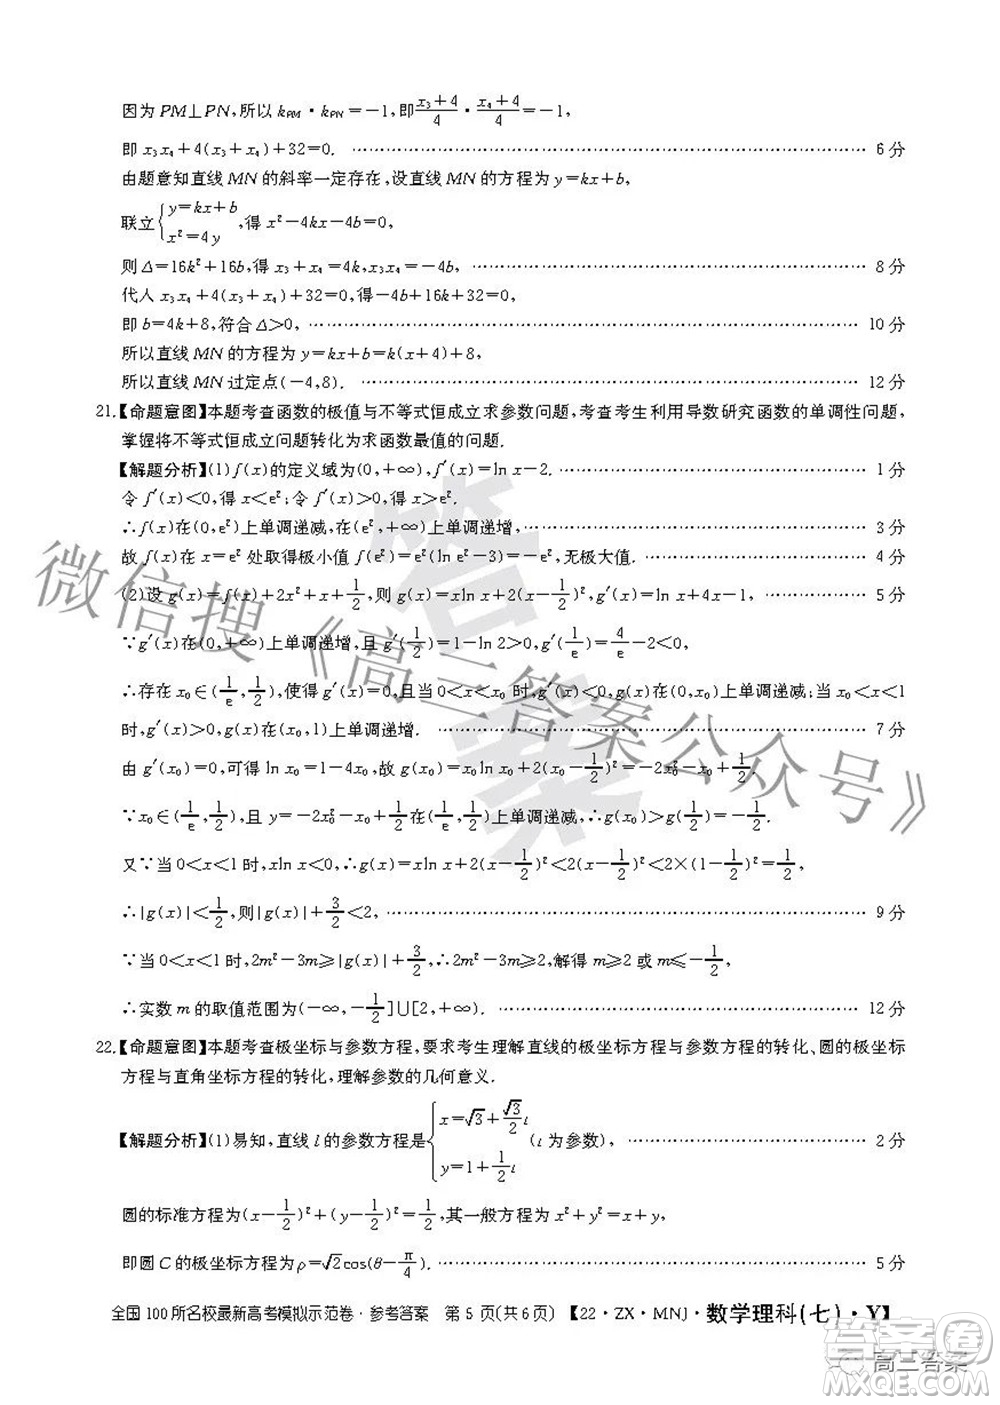 因为PM⊥PN,所以k_PM·k_PN=-1,即(x₃+4)/4·(x₄+4)/4=-1,
即x₃x₄+4(x₃+x₄)+32=0. …… 6分
由题意知直线MN的斜率一定存在,设直线MN的方程为y=kx+b,
联立{y=kx+b, x²=4y},得x²-4kx-4b=0,
则Δ=16k²+16b,得x₃+x₄=4k,x₃x₄=-4b, …… 8分
代人x₃x₄+4(x₃+x₄)+32=0,得-4b+16k+32=0,
即b=4k+8,符合Δ>0, …… 10分
所以直线MN的方程为y=kx+b=k(x+4)+8,
所以直线MN过定点(-4,8). …… 12分
21.【命题意图】本题考查函数的极值与不等式恒成立求参数问题,考查考生利用导数研究函数的单调性问题,
掌握将不等式恒成立问题转化为求函数最值的问题.
【解题分析】(1)f(x)的定义域为(0,+∞),f′(x)=ln x-2. …… 1分
令f′(x)<0,得x<e²;令f′(x)>0,得x>e².
∴f(x)在(0,e²)上单调递减,在(e²,+∞)上单调递增, …… 3分
故f(x)在x=e²处取得极小值f(e²)=e²(ln e²-3)=-e²,无极大值. …… 4分
(2)设g(x)=f(x)+2x²+x+1/2,则g(x)=xln x+2(x-1/2)²,g′(x)=ln x+4x-1, …… 5分
∵g′(x)在(0,+∞)上单调递增,且g′(1/2)=1-ln 2>0,g′(1/e)=4/e-2<0,
∴存在x₀∈(1/e,1/2),使得g′(x)=0,且当0<x<x₀时,g′(x)<0,g(x)在(0,x₀)上单调递减;当x₀<x<1
时,g′(x)>0,g(x)在(x₀,1)上单调递增. …… 7分
由g′(x₀)=0,可得ln x₀=1-4x₀,故g(x₀)=x₀ln x₀+2(x₀-1/2)²=-2x₀²-x₀+1/2.
∵x₀∈(1/e,1/2),且y=-2x₀²-x₀+1/2在(1/e,1/2)上单调递减,∴g(x₀)>g(1/2)=-1/2.
又∵当0<x<1时,xln x<0,∴g(x)=xln x+2(x-1/2)²<2(x-1/2)²<2×(1-1/2)²=1/2,
∴|g(x)|<1/2,则|g(x)|+3/2<2, …… 9分
∵当0<x<1时,2m²-3m≥|g(x)|+3/2,∴2m²-3m≥2,解得m≥2或m≤-1/2,
∴实数m的取值范围为(-∞,-1/2]∪[2,+∞). …… 12分
22.【命题意图】本题考查极坐标与参数方程,要求考生理解直线的极坐标方程与参数方程的转化、圆的极坐标
方程与直角坐标方程的转化,理解参数的几何意义.
【解题分析】(1)易知,直线l的参数方程是{x=√3+(√3/2)t, y=1+(1/2)t}(t为参数), …… 2分
圆的标准方程为(x-1/2)²+(y-1/2)²=1/2,其一般方程为x²+y²=x+y,
即圆C的极坐标方程为ρ=√2cos(θ-π/4). …… 5分
全国100所名校最新高考模拟示范卷·参考答案 第5页(共6页) 【22·ZX·MNJ·数学理科(七)·Y】
微信搜《高三答案公众号》
答案
答案卷
高三答案
MXQE.COM